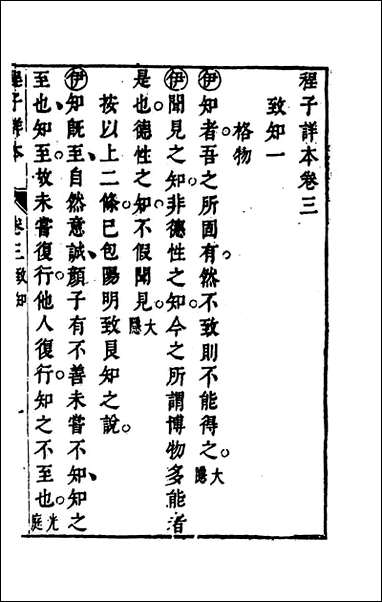 程子詳本卷三
致知一
格物
伊知者吾之所固有。然不致則不能得之。大隱
伊聞見之知。非德性之知。今之所謂博物多能者
是也。德性之知。不假聞見。大隱
按以上二條。已包陽明致良知之說。
伊知既至、自然意誠。顏子有不善未嘗不知、知之
至也、知至。故未嘗復行。他人復行。知之不至也。光庭
程子詳本 卷三致知